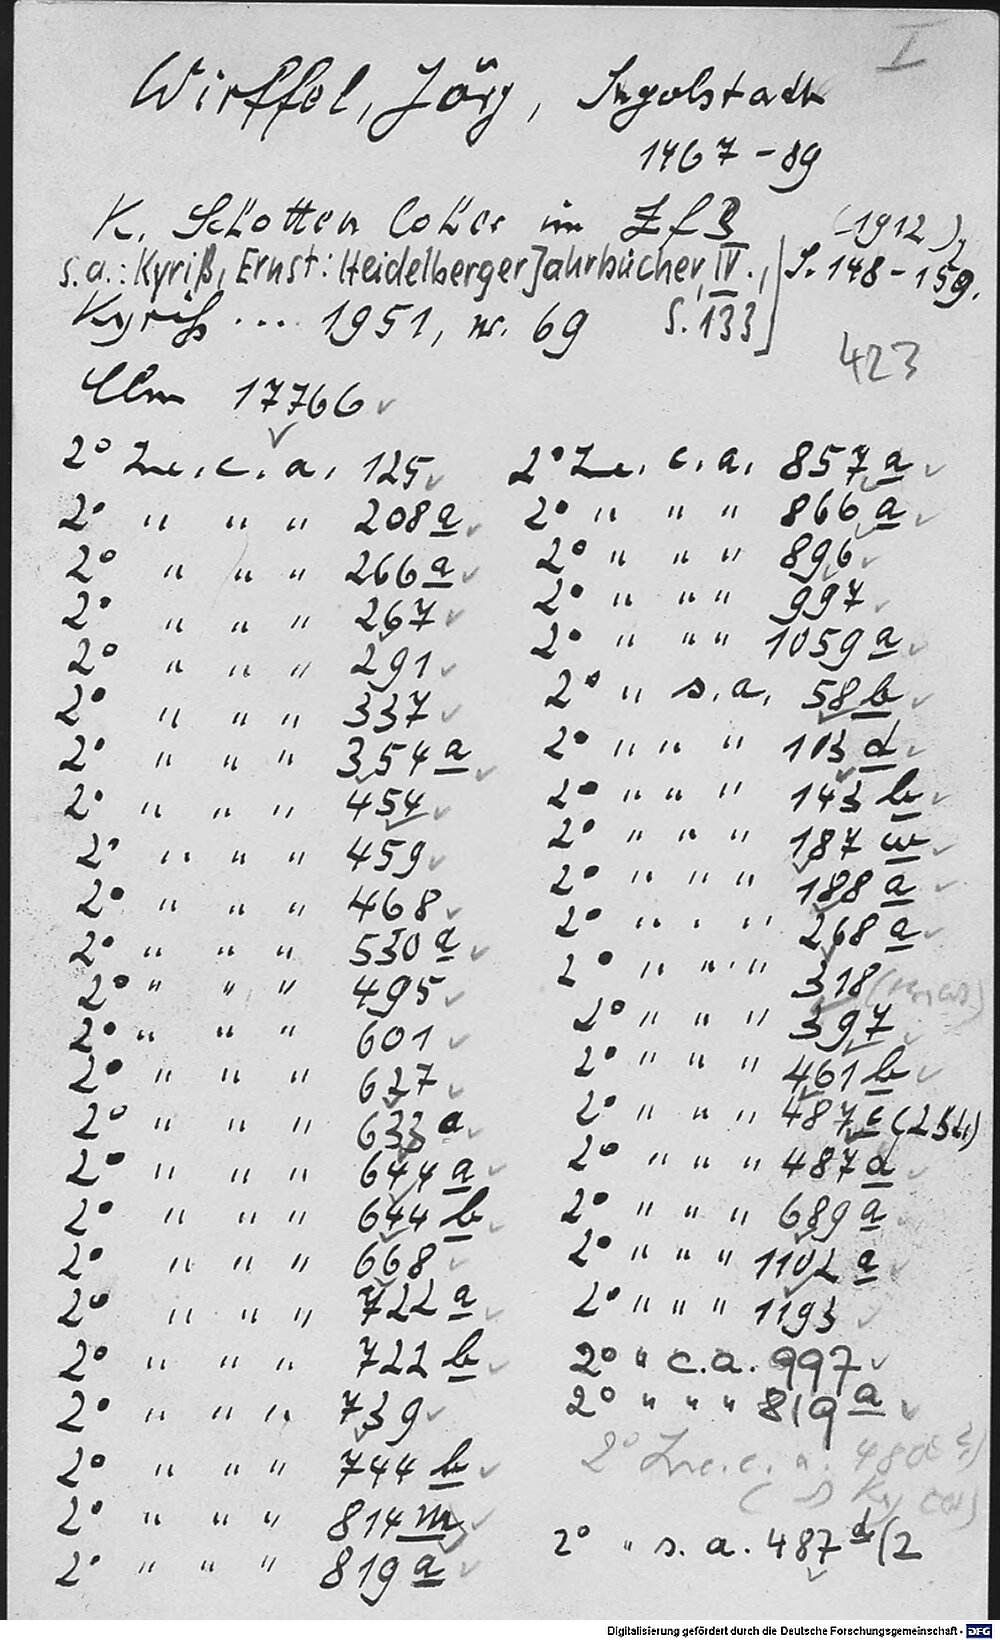 I
Wirffel, Jörg, Ingolstadt
1467-89
K. Schottenloher im ZfB (1912),
s.a.: Kyriß, Ernst: Heidelberger Jahrbücher, IV., S. 148-159.
Kyriß ... 1951, nr. 69 S. 133]
423
Clm 17766
2° Inc. c. a. 125
2° " " " 208a
2° " " " 266a
2° " " " 267
2° " " " 291
2° " " " 337
2° " " " 354a
2° " " " 454
2° " " " 459
2° " " " 468
2° " " " 530a
2° " " " 495
2° " " " 601
2° " " " 627
2° " " " 633a
2° " " " 644a
2° " " " 644b
2° " " " 668
2° " " " 722a
2° " " " 722b
2° " " " 739
2° " " " 744b
2° " " " 814m
2° " " " 819a
2° Inc. c. a. 857a
2° " " " 866a
2° " " " 896
2° " " " 997
2° " " " 1059a
2° " s. a. 58b
2° " " " 103d
2° " " " 143b
2° " " " 187w
2° " " " 188a
2° " " " 268a
2° " " " 318
2° " " " 397
2° " " " 461b
2° " " " 487c (2 St.)
2° " " " 487d
2° " " " 689a
2° " " " 1102a
2° " " " 1193
2° " c. a. 997
2° " " " 819a
2° Inc. c. a.
2° " s. a. 487d (2
Digitalisierung gefördert durch die Deutsche Forschungsgemeinschaft - DFG